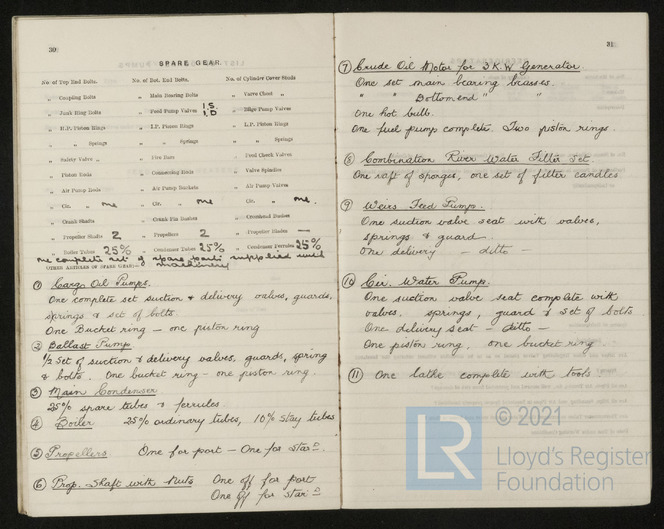 30
SPARE GEAR.
No. of Top End Bolts.
No. of Bot. End Bolts.
No. of Cylinder Cover Studs
„ Coupling Bolts
„ Main Bearing Bolts
„ Valve Chest „
„ Junk Ring Bolts
„ Feed Pump Valves 1.S. 1.D
„ Bilge Pump Valves
„ H.P. Piston Rings
„ I.P. Piston Rings
„ L.P. Piston Rings
„ „ Springs
„ „ Springs
„ „ Springs
„ Safety Valve „
„ Fire Bars
„ Feed Check Valves
„ Piston Rods
„ Connecting Rods
„ Valve Spindles
„ Air Pump Rods
„ Air Pump Buckets
„ Air Pump Valves
„ Cir. „ one
„ Cir. „ one
„ Cir. „ one.
„ Crank Shafts
„ Crank Pin Bushes
„ Crosshead Bushes
„ Propeller Shafts 2
„ Propellers 2
„ Propeller Blades —
„ Boiler Tubes 25%
„ Condenser Tubes 25%
„ Condenser Ferrules 25%
one complete set of spare parts supplied with machinery
OTHER ARTICLES OF SPARE GEAR:—
① Cargo Oil Pumps.
One complete set suction & delivery valves, guards,
springs & set of bolts.
One Bucket ring — one piston ring
② Ballast Pump
1/2 Set of suction & delivery valves, guards, spring
& bolts. One bucket ring – one piston ring.
③ Main Condenser
25% spare tubes & ferrules
④ Boiler 25% ordinary tubes, 10% stay tubes
⑤ Propellers One for port – One for starᵈ.
⑥ Prop. Shaft with Nuts One off for port
One off for starᵈ
31
⑦ Crude Oil Motor for 3 K.W Generator.
One set main bearing brasses.
„ „ Bottom end „ „
One hot bulb.
One fuel pump complete Two piston rings
⑧ Combination River Water Filter Set.
One raft of sponges, one set of filter candles
⑨ Weirs Feed Pumps.
One suction valve seat with valves,
springs & guard
One delivery — ditto —
⑩ Cir. Water Pumps.
One suction valve seat complete with
valves, springs, guard & set of bolts
One delivery seat – ditto –
One piston ring, one bucket ring
⑪ One lathe complete with tools.
LR
© 2021
Lloyd's Register
Foundation